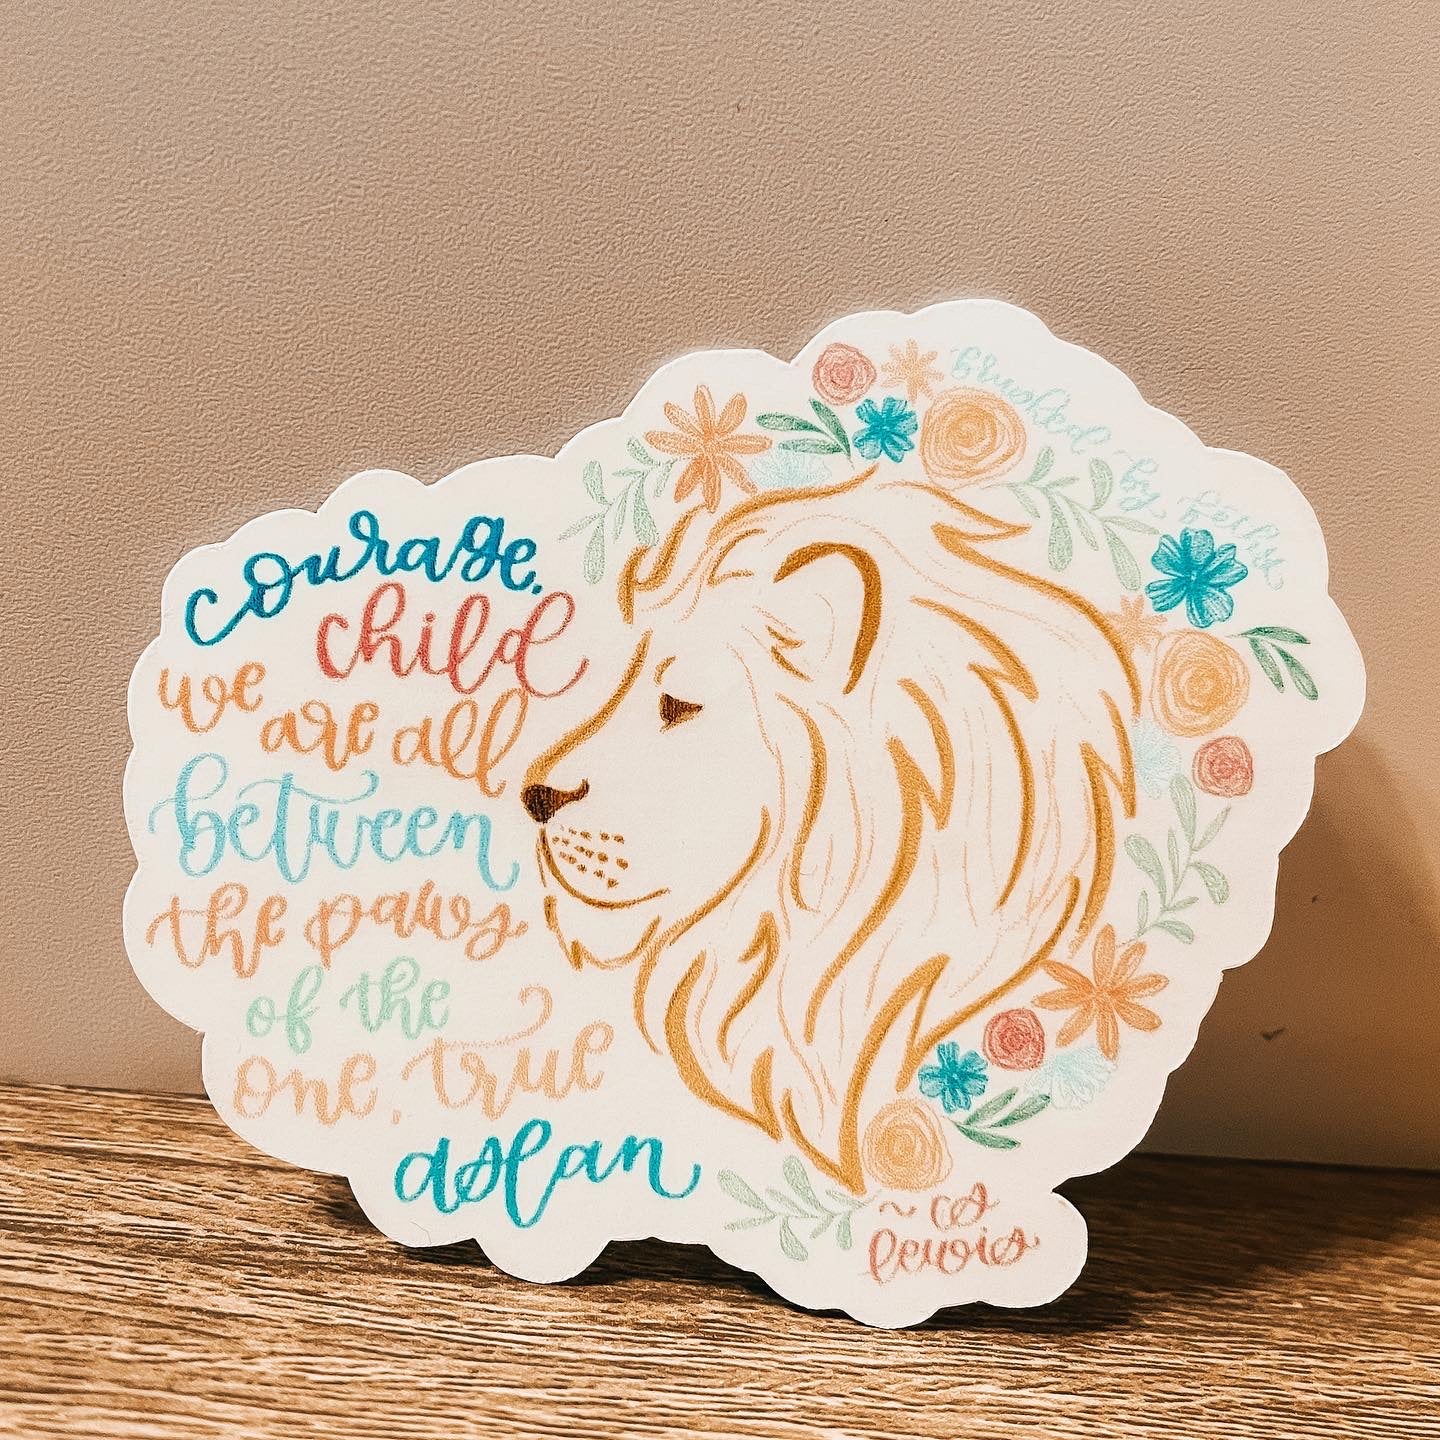 courage,
child
we are all
between
the paws
of the
one, true
aslan
~ cs
lewis
brushed by